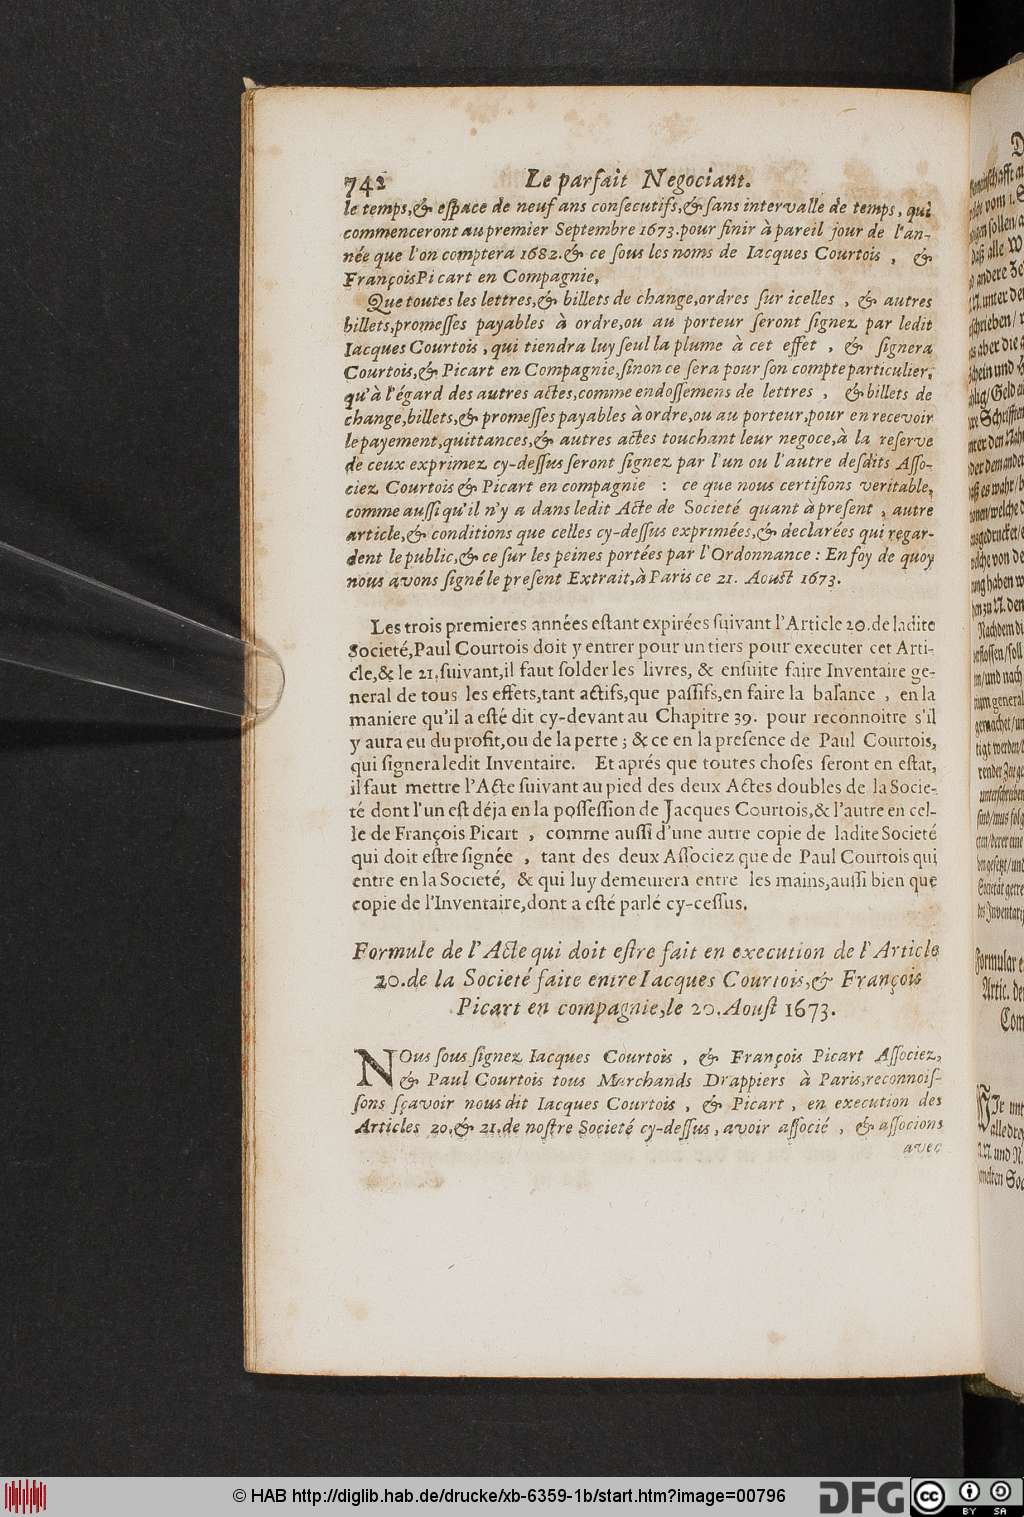 742 Le parfait Negociant.
le temps,& eſpace de neuf ans conſecutifs,& ſans intervalle de temps, qui
commenceront au premier Septembre 1673.pour finir à pareil jour de l'an-
née que l'on comptera 1682.& ce ſous les noms de Iacques Courtois , &
FrançoisPicart en Compagnie,
Que toutes les lettres,& billets de change,ordres ſur icelles , & autres
billets,promeſſes payables à ordre,ou au porteur ſeront ſignez par ledit
Iacques Courtois , qui tiendra luy ſeul la plume à cet effet , & ſignera
Courtois,& Picart en Compagnie,ſinon ce ſera pour ſon compte particulier,
qu'à l'égard des autres actes,comme endoſſemens de lettres , & billets de
change,billets,& promeſſes payables à ordre,ou au porteur,pour en recevoir
le payement,quittances,& autres actes touchant leur negoce,à la reſerve
de ceux exprimez cy-deſſus ſeront ſignez par l'un ou l'autre deſdits Aſſo-
ciez Courtois & Picart en compagnie : ce que nous certifions veritable,
comme auſſi qu'il n'y a dans ledit Acte de Societé quant à preſent , autre
article,& conditions que celles cy-deſſus exprimées,& declarées qui regar-
dent le public,& ce ſur les peines portées par l'Ordonnance : En foy de quoy
nous avons ſigné le preſent Extrait,à Paris ce 21. Aouſt 1673.
Les trois premieres années eſtant expirées ſuivant l'Article 20.de ladite
Societé,Paul Courtois doit y entrer pour un tiers pour executer cet Arti-
cle,& le 21.ſuivant,il faut ſolder les livres, & enſuite faire Inventaire ge-
neral de tous les effets,tant actifs,que paſſifs,en faire la balance , en la
maniere qu'il a eſté dit cy-devant au Chapitre 39. pour reconnoitre s'il
y aura eu du profit,ou de la perte ; & ce en la preſence de Paul Courtois,
qui ſignera ledit Inventaire. Et aprés que toutes choſes ſeront en eſtat,
il faut mettre l'Acte ſuivant au pied des deux Actes doubles de la Socie-
té dont l'un eſt déja en la poſſeſſion de Jacques Courtois,& l'autre en cel-
le de François Picart , comme auſſi d'une autre copie de ladite Societé
qui doit eſtre ſignée , tant des deux Aſſociez que de Paul Courtois qui
entre en la Societé, & qui luy demeurera entre les mains,auſſi bien que
copie de l'Inventaire,dont a eſté parlé cy-ceſſus.
Formule de l' Acte qui doit eſtre fait en execution de l' Article
20.de la Societé faite entre Iacques Courtois,& François
Picart en compagnie,le 20.Aouſt 1673.
NOus ſous ſignez Iacques Courtois , & François Picart Aſſociez,
& Paul Courtois tous Marchands Drappiers à Paris,reconnoiſ-
ſons ſçavoir nous dit Iacques Courtois , & Picart , en execution des
Articles 20.& 21.de noſtre Societé cy-deſſus, avoir aſſocié , & aſſocions
avec
© HAB http://diglib.hab.de/drucke/xb-6359-1b/start.htm?image=00796
DFG
cc BY SA